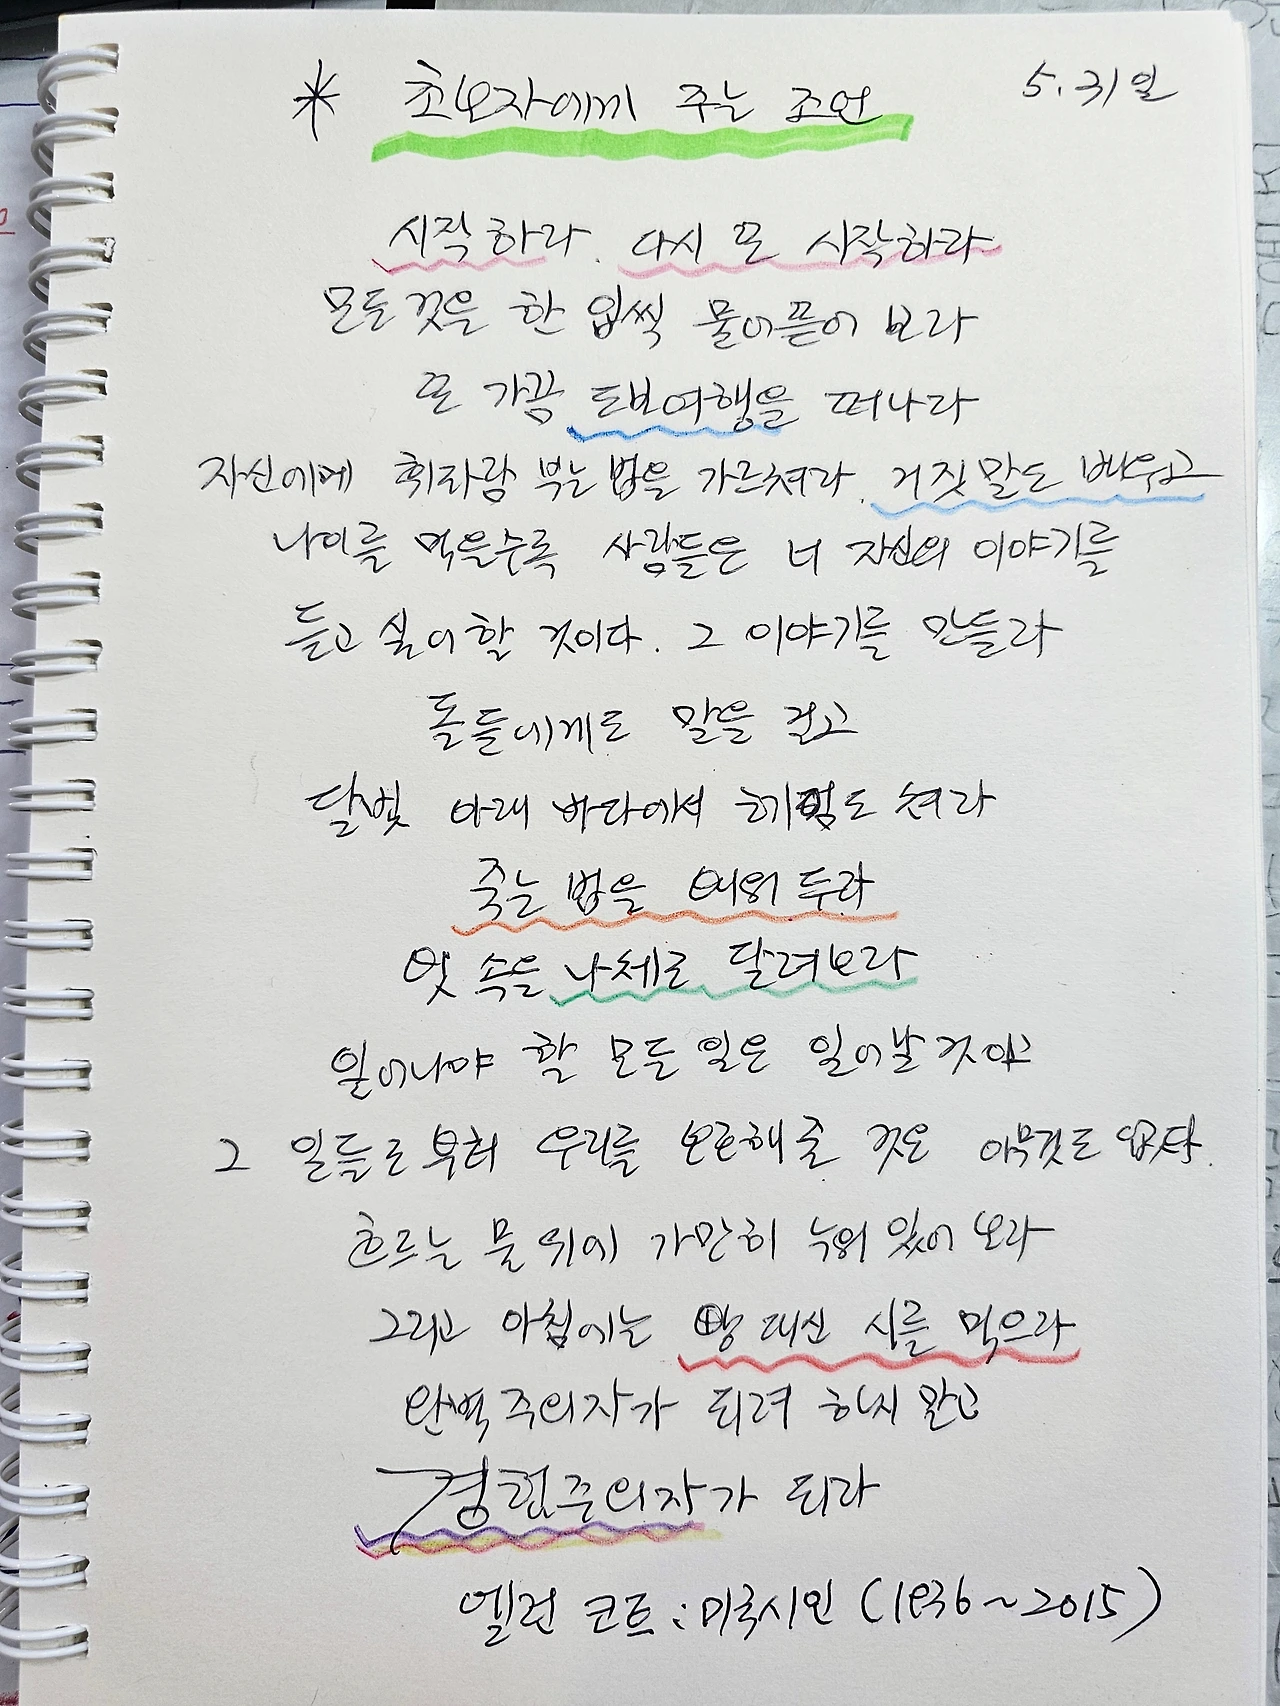 * 초보자에게 주는 조언
5.31일
시작하라. 다시 또 시작하라
모든것을 한 입씩 물어뜯어 보라
또 가끔 도보여행을 떠나라
자신에게 휘파람 부는 법을 가르쳐라. 거짓말도 배우고
나이를 먹을수록 사람들은 너 자신의 이야기를
듣고 싶어할 것이다. 그 이야기를 만들라
돌들에게도 말을 걸고
달빛 아래 바다에서 헤엄도 쳐라
죽는 법을 배워 두라
빗 속을 나체로 달려보라
일어나야 할 모든 일은 일어날 것이고
그 일들로부터 우리를 보호해줄 것은 아무것도 없다.
흐르는 물 위에 가만히 누워 있어 보라
그리고 아침에는 빵 대신 시를 먹으라
완벽주의자가 되려 하지 말고
경험주의자가 되라
엘런 코트 : 미국시인 (1936~2015)